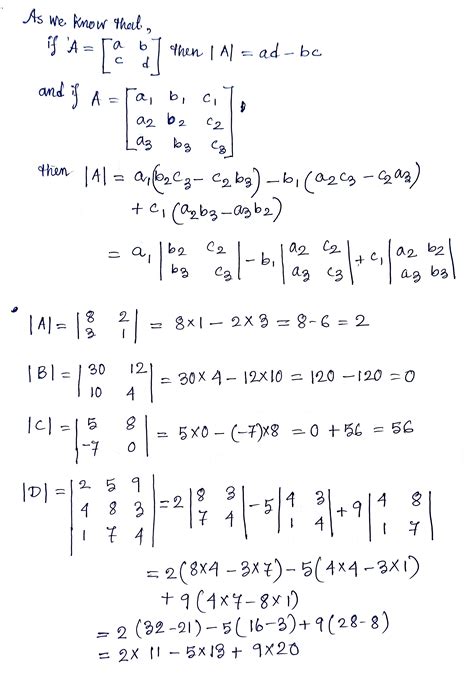 As we know that,
if A = [a b
c d] then |A| = ad - bc
and if A = [a₁ b₁ c₁
a₂ b₂ c₂
a₃ b₃ c₃],
then |A| = a₁(b₂c₃ - c₂b₃) - b₁(a₂c₃ - c₂a₃)
+ c₁(a₂b₃ - a₃b₂)
= a₁ |b₂ c₂
b₃ c₃| - b₁ |a₂ c₂
a₃ c₃| + c₁ |a₂ b₂
a₃ b₃|
|A| = |8 2
3 1| = 8×1 - 2×3 = 8-6 = 2
|B| = |30 12
10 4| = 30×4 - 12×10 = 120 - 120 = 0
|C| = |5 8
-7 0| = 5×0 - (-7)×8 = 0 + 56 = 56
|D| = |2 5 9
4 8 3
1 7 4| = 2 |8 3
7 4| - 5 |4 3
1 4| + 9 |4 8
1 7|
= 2(8×4 - 3×7) - 5(4×4 - 3×1)
+ 9(4×7 - 8×1)
= 2(32-21) - 5(16-3) + 9(28-8)
= 2×11 - 5×13 + 9×20